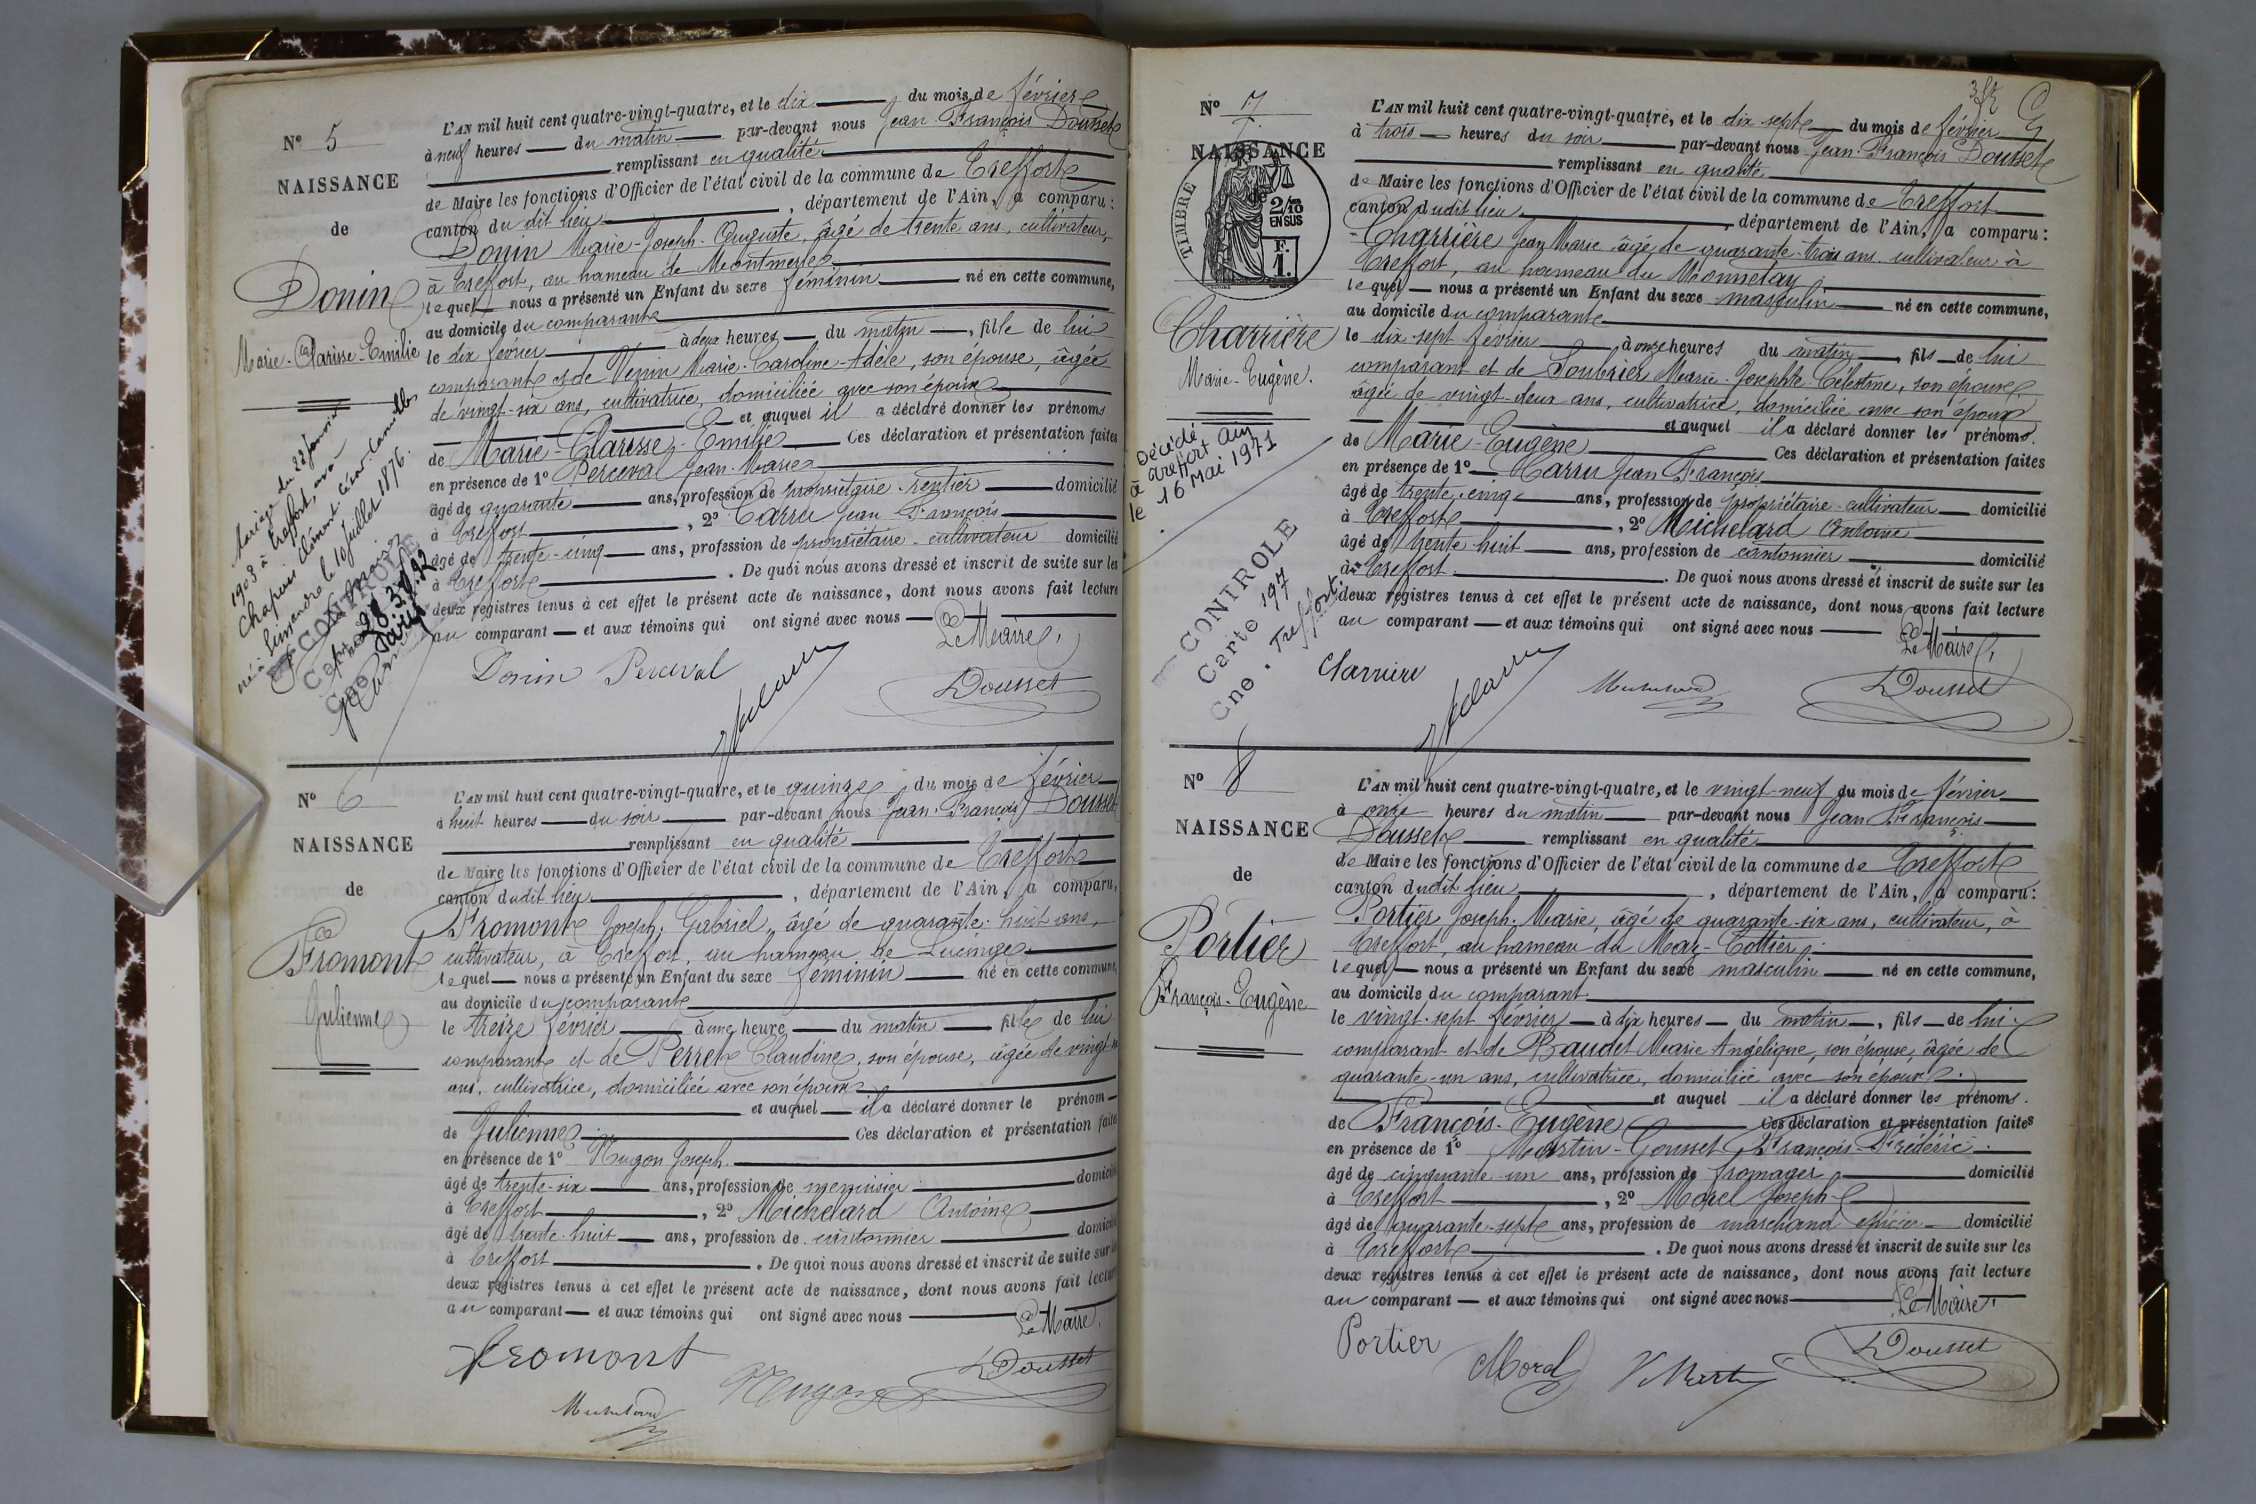 N° 5
NAISSANCE
de
Donin
Marie-Clarisse-Emilie
Mariage du 22 janvier
1903 à Treffort, avec
Chapuis Clément César Camille
né à Simandre le 10 juillet 1876.
CONTROLE
L'AN mil huit cent quatre-vingt-quatre, et le dix du mois de février
à neuf heures du matin par-devant nous Jean-François Dousset
remplissant en qualité
de Maire les fonctions d'Officier de l'état civil de la commune de Treffort
canton du dit lieu, département de l'Ain, a comparu :
Donin Marie-Joseph-Auguste, âgé de trente ans, cultivateur,
à Treffort, au hameau de Montmerle
lequel nous a présenté un Enfant du sexe féminin né en cette commune,
au domicile du comparant
le dix février à deux heures du matin, fille de lui
comparant et de Venin Marie-Caroline-Adèle, son épouse, âgée
de vingt-six ans, cultivatrice, domiciliée avec son époux
et auquel il a déclaré donner les prénoms
de Marie-Clarisse-Emilie Ces déclaration et présentation faites
en présence de 1° Perceval Jean-Marie
âgé de quarante ans, profession de propriétaire-rentier domicilié
à Treffort, 2° Carru Jean François
âgé de trente-cinq ans, profession de propriétaire-cultivateur domicilié
à Treffort. De quoi nous avons dressé et inscrit de suite sur les
deux registres tenus à cet effet le présent acte de naissance, dont nous avons fait lecture
au comparant et aux témoins qui ont signé avec nous
Le Maire,
Donin Perceval
Dousset
N° 6
NAISSANCE
de
Fromont
Julienne
L'AN mil huit cent quatre-vingt-quatre, et le quinze du mois de février
à huit heures du soir par-devant nous Jean-François Dousset
remplissant en qualité
de Maire les fonctions d'Officier de l'état civil de la commune de Treffort
canton dudit lieu, département de l'Ain, a comparu,
Fromont Joseph-Gabriel, âgé de quarante-huit ans,
cultivateur, à Treffort, au hameau de Lucinge
lequel nous a présenté un Enfant du sexe féminin né en cette commune,
au domicile du comparant
le treize février à une heure du matin fille de lui
comparant et de Perret Claudine, son épouse, âgée de vingt-
ans, cultivatrice, domiciliée avec son époux
et auquel il a déclaré donner le prénom
de Julienne Ces déclaration et présentation faites
en présence de 1° Hugon Joseph
âgé de trente-six ans, profession de menuisier domicilié
à Treffort, 2° Michelard Antoine
âgé de trente-huit ans, profession de cantonnier domicilié
à Treffort. De quoi nous avons dressé et inscrit de suite sur les
deux registres tenus à cet effet le présent acte de naissance, dont nous avons fait lecture
au comparant et aux témoins qui ont signé avec nous
Le Maire,
Fromont
Hugon
Dousset
Michelard
N° 7
NAISSANCE
de
TIMBRE
2/10
EN SUS
F.
1.
Charrière
Marie-Eugène.
Décédé
à Treffort Ain
le 16 Mai 1971
CONTROLE
Carte 197
Cne. Treffort
L'AN mil huit cent quatre-vingt-quatre, et le dix sept du mois de février
à trois heures du soir par-devant nous Jean-François Dousset
remplissant en qualité
de Maire les fonctions d'Officier de l'état civil de la commune de Treffort
canton dudit lieu, département de l'Ain, a comparu :
Charrière Jean Marie âgé de quarante-trois ans, cultivateur à
Treffort, au hameau du Monnetay
lequel nous a présenté un Enfant du sexe masculin né en cette commune,
au domicile du comparant
le dix-sept février à onze heures du matin, fils de lui
comparant et de Soubrier Marie-Josephte-Célestine, son épouse,
âgée de vingt-deux ans, cultivatrice, domiciliée avec son époux
et auquel il a déclaré donner les prénoms.
de Marie-Eugène Ces déclaration et présentation faites
en présence de 1° Carru Jean François
âgé de trente-cinq ans, profession de propriétaire-cultivateur domicilié
à Treffort, 2° Michelard Antoine
âgé de trente huit ans, profession de cantonnier domicilié
à Treffort. De quoi nous avons dressé et inscrit de suite sur les
deux registres tenus à cet effet le présent acte de naissance, dont nous avons fait lecture
au comparant et aux témoins qui ont signé avec nous
Le Maire,
Charriere
Michelard
Dousset
N° 8
NAISSANCE
de
Portier
François-Eugène
L'AN mil huit cent quatre-vingt-quatre, et le vingt-neuf du mois de février
à onze heures du matin par-devant nous Jean François
Dousset remplissant en qualité
de Maire les fonctions d'Officier de l'état civil de la commune de Treffort
canton dudit lieu, département de l'Ain, a comparu :
Portier Joseph-Marie, âgé de quarante-six ans, cultivateur, à
Treffort, au hameau du Maz-Tottier
lequel nous a présenté un Enfant du sexe masculin né en cette commune,
au domicile du comparant.
le vingt-sept février à dix heures du matin, fils de lui
comparant et de Baudet Marie Angélique, son épouse, âgée de
quarante-un ans, cultivatrice, domiciliée avec son époux.
et auquel il a déclaré donner les prénoms.
de François-Eugène Ces déclaration et présentation faites
en présence de 1° Martin-Gousset François-Frédéric
âgé de cinquante-un ans, profession de fromager domicilié
à Treffort, 2° Morel Joseph
âgé de quarante-sept ans, profession de marchand épicier domicilié
à Treffort. De quoi nous avons dressé et inscrit de suite sur les
deux registres tenus à cet effet le présent acte de naissance, dont nous avons fait lecture
au comparant et aux témoins qui ont signé avec nous
Le Maire,
Portier
Morel
Dousset